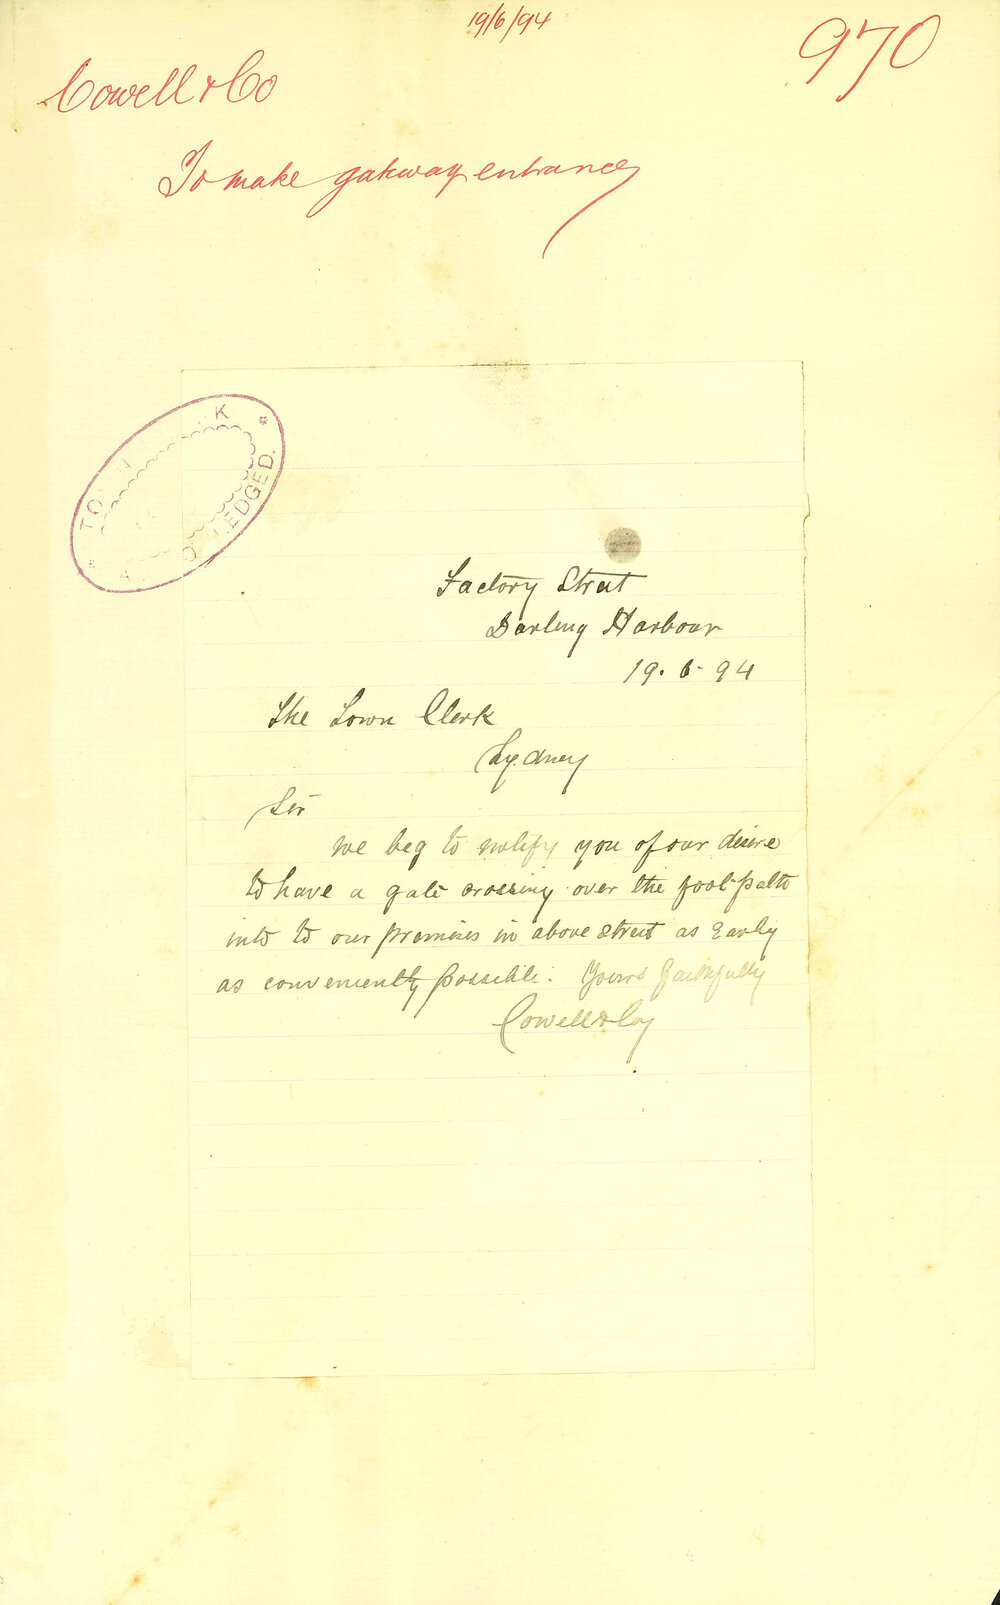 19/6/94
970
Cowell & Co
To make gateway entrance
TOWN CLERK
ACKNOWLEDGED.
Factory Street
Darling Harbour
19.6-94
The Town Clerk
Sydney
Sir
We beg to notify you of our desire
to have a gate crossing over the foot path
into to our premises in above street as Early
as conveniently possible. Yours faithfully
Cowell & Coy